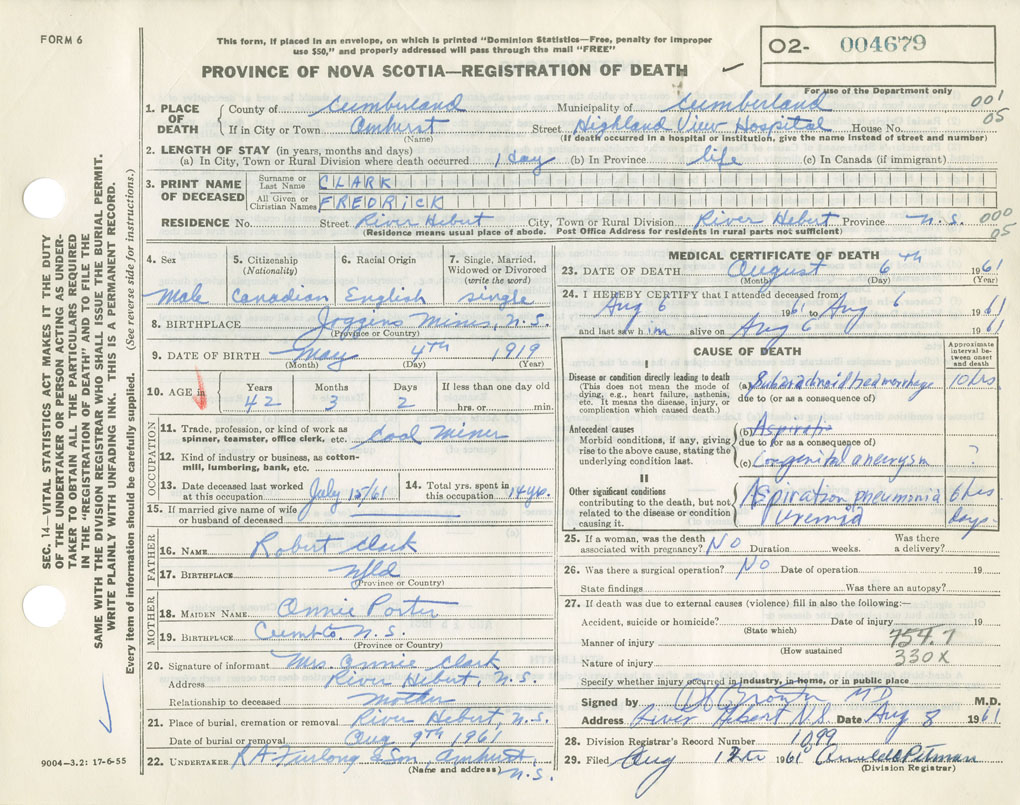 FORM 6
This form, if placed in an envelope, on which is printed "Dominion Statistics—Free, penalty for improper
use $50," and properly addressed will pass through the mail "FREE"
PROVINCE OF NOVA SCOTIA—REGISTRATION OF DEATH
O2- 004679
For use of the Department only
001
05
1. PLACE OF DEATH
County of Cumberland Municipality of Cumberland
If in City or Town Amhurst Street Highland View Hospital House No.
(Name) (If death occurred in a hospital or institution, give the name instead of street and number)
2. LENGTH OF STAY (in years, months and days)
(a) In City, Town or Rural Division where death occurred 1 day (b) In Province life (c) In Canada (if immigrant)
3. PRINT NAME OF DECEASED
Surname or Last Name CLARK
All Given or Christian Names FREDRICK
RESIDENCE No. Street River Hebert City, Town or Rural Division River Hebert Province N.S.
000
05
(Residence means usual place of abode. Post Office Address for residents in rural parts not sufficient)
4. Sex 5. Citizenship (Nationality) 6. Racial Origin 7. Single, Married, Widowed or Divorced (write the word)
Male Canadian English single
8. BIRTHPLACE Joggins Mines, N.S.
(Province or Country)
9. DATE OF BIRTH May 4th 1919
(Month) (Day) (Year)
10. AGE in Years Months Days If less than one day old
42 3 2 hrs. or min.
OCCUPATION
11. Trade, profession, or kind of work as
spinner, teamster, office clerk, etc. Cool Miner
12. Kind of industry or business, as cotton-
mill, lumbering, bank, etc.
13. Date deceased last worked
at this occupation July 15/61
14. Total yrs. spent in
this occupation 14 yrs.
15. If married give name of wife
or husband of deceased
FATHER
16. NAME Robert Clark
17. BIRTHPLACE Nfld
(Province or Country)
MOTHER
18. MAIDEN NAME Annie Porter
19. BIRTHPLACE Cumb. Co. N.S.
(Province or Country)
20. Signature of informant Mrs. Annie Clark
Address River Hebert, N.S.
Relationship to deceased Mother
21. Place of burial, cremation or removal River Hebert, N.S.
Date of burial or removal Aug 9th 1961
22. UNDERTAKER R A Furlong & Son, Amhurst,
(Name and address) N.S.
MEDICAL CERTIFICATE OF DEATH
23. DATE OF DEATH August 6th 1961
(Month) (Day) (Year)
24. I HEREBY CERTIFY that I attended deceased from
Aug 6 1961 to Aug 6 1961
and last saw him alive on Aug 6 1961
CAUSE OF DEATH
Approximate interval between onset and death
I
Disease or condition directly leading to death
(This does not mean the mode of
dying, e.g., heart failure, asthenia,
etc. It means the disease, injury, or
complication which caused death.)
(a) Subarachnoid heamorrhage 10 hrs
due to (or as a consequence of)
Antecedent causes
Morbid conditions, if any, giving
rise to the above cause, stating the
underlying condition last.
(b) Aspiratio
due to (or as a consequence of)
(c) Congenital aneurysm ?
II
Other significant conditions
contributing to the death, but not
related to the disease or condition
causing it.
Aspiration pneumonia 6 hrs
Uremia days-
25. If a woman, was the death
associated with pregnancy? No Duration weeks. Was there
a delivery?
26. Was there a surgical operation? No Date of operation 19
State findings Was there an autopsy?
27. If death was due to external causes (violence) fill in also the following:—
Accident, suicide or homicide? Date of injury 19
(State which)
Manner of injury 754.7
(How sustained)
Nature of injury 330X
Specify whether injury occurred in industry, in home, or in public place
Signed by M D M.D.
Address River Hebert N.S. Date Aug 8 1961
28. Division Registrar's Record Number 1099
29. Filed Aug 1961
(Division Registrar)
SEC. 14—VITAL STATISTICS ACT MAKES IT THE DUTY
OF THE UNDERTAKER OR PERSON ACTING AS UNDER-
TAKER TO OBTAIN ALL THE PARTICULARS REQUIRED
IN THE "REGISTRATION OF DEATH" AND TO FILE THE
SAME WITH THE DIVISION REGISTRAR WHO SHALL ISSUE THE BURIAL PERMIT.
WRITE PLAINLY WITH UNFADING INK. THIS IS A PERMANENT RECORD.
Every item of information should be carefully supplied. (See reverse side for instructions.)
9004-3.2: 17-6-55